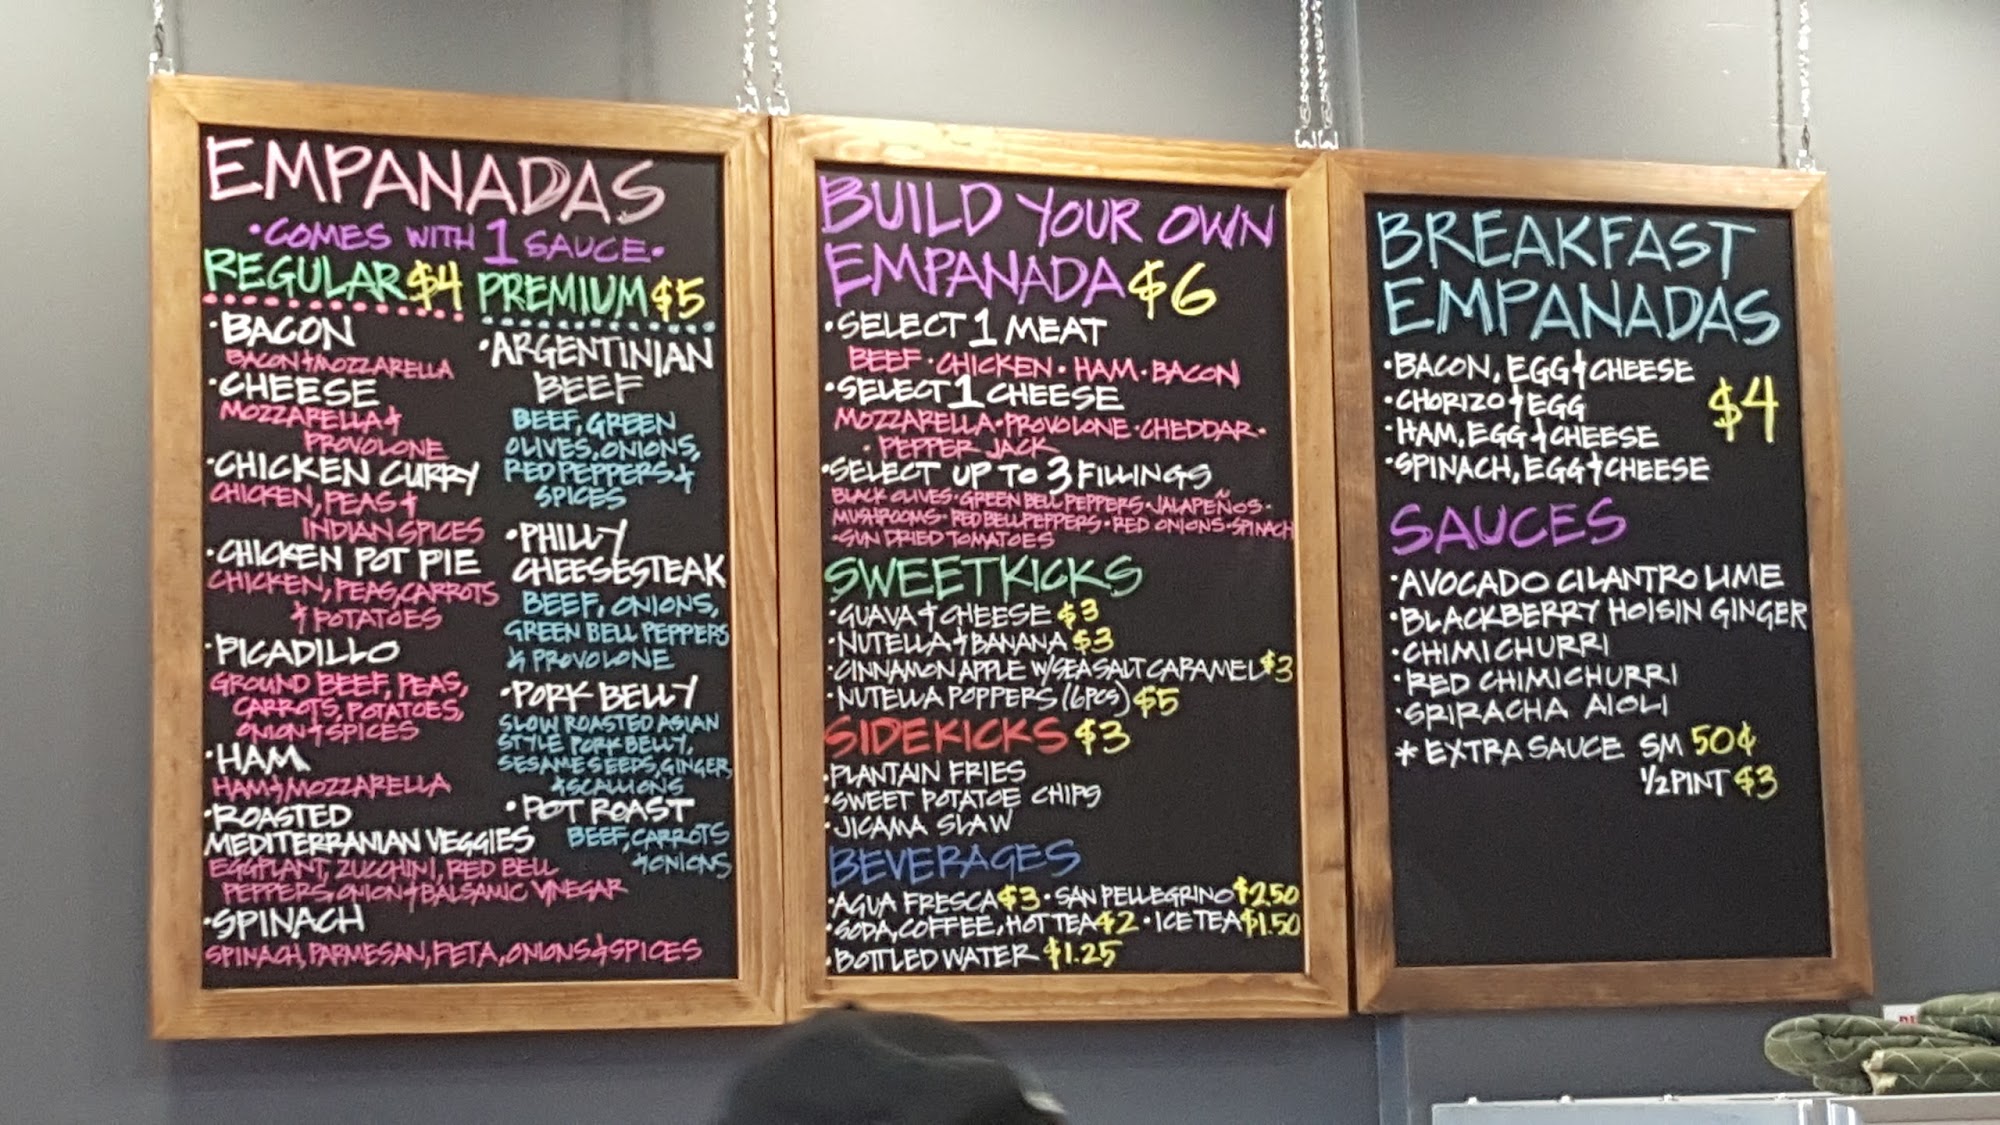 EMPANADAS
•COMES WITH 1 SAUCE•
REGULAR $4
•BACON
BACON & MOZZARELLA
•CHEESE
MOZZARELLA &
PROVOLONE
•CHICKEN CURRY
CHICKEN, PEAS &
INDIAN SPICES
•CHICKEN POT PIE
CHICKEN, PEAS, CARROTS
& POTATOES
•PICADILLO
GROUND BEEF, PEAS,
CARROTS, POTATOES,
ONION & SPICES
•HAM
HAM & MOZZARELLA
•ROASTED
MEDITERRANIAN VEGGIES
EGGPLANT, ZUCCHINI, RED BELL
PEPPERS, ONION & BALSAMIC VINEGAR
•SPINACH
SPINACH, PARMESAN, FETA, ONIONS & SPICES
PREMIUM $5
•ARGENTINIAN
BEEF
BEEF, GREEN
OLIVES, ONIONS,
RED PEPPERS &
SPICES
•PHILLY
CHEESESTEAK
BEEF, ONIONS,
GREEN BELL PEPPERS
& PROVOLONE
•PORK BELLY
SLOW ROASTED ASIAN
STYLE PORK BELLY,
SESAME SEEDS, GINGER
& SCALLIONS
•POT ROAST
BEEF, CARROTS
& ONIONS
BUILD YOUR OWN
EMPANADA $6
•SELECT 1 MEAT
BEEF • CHICKEN • HAM • BACON
•SELECT 1 CHEESE
MOZZARELLA • PROVOLONE • CHEDDAR •
• PEPPER JACK
•SELECT UP TO 3 FILLINGS
BLACK OLIVES • GREEN BELL PEPPERS • JALAPEÑOS •
MUSHROOMS • RED BELL PEPPERS • RED ONIONS • SPINACH
• SUN DRIED TOMATOES
SWEETKICKS
•GUAVA & CHEESE $3
•NUTELLA & BANANA $3
•CINNAMON APPLE W/SEA SALT CARAMEL $3
•NUTELLA POPPERS (6PCS) $5
SIDEKICKS $3
•PLANTAIN FRIES
•SWEET POTATOE CHIPS
•JICAMA SLAW
BEVERAGES
•AGUA FRESCA $3 • SAN PELLEGRINO $2.50
•SODA, COFFEE, HOT TEA $2 • ICE TEA $1.50
•BOTTLED WATER $1.25
BREAKFAST
EMPANADAS
•BACON, EGG & CHEESE
•CHORIZO & EGG
$4
•HAM, EGG & CHEESE
•SPINACH, EGG & CHEESE
SAUCES
•AVOCADO CILANTRO LIME
•BLACKBERRY HOISIN GINGER
•CHIMICHURRI
•RED CHIMICHURRI
•SRIRACHA AIOLI
* EXTRA SAUCE SM 50¢
1/2 PINT $3